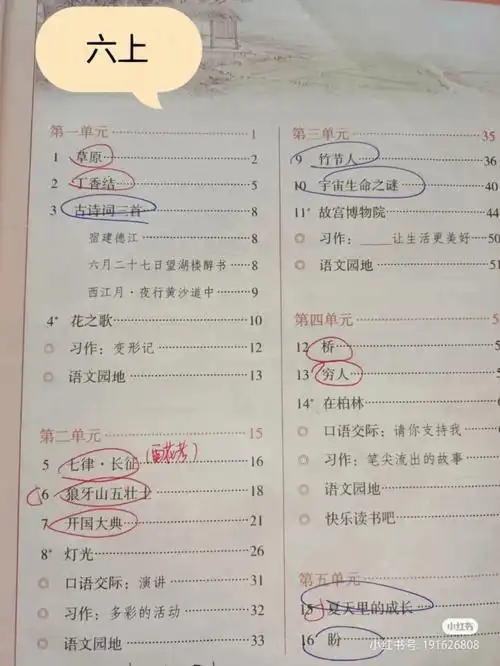 六上
第一单元 1
1 草原 2
2 丁香结 5
3 古诗词三首 8
宿建德江 8
六月二十七日望湖楼醉书 8
西江月·夜行黄沙道中 9
4* 花之歌 10
习作：变形记 12
语文园地 13
第二单元 15
5 七律·长征 16
6 狼牙山五壮士 18
7 开国大典 21
8* 灯光 26
口语交际：演讲 31
习作：多彩的活动 32
语文园地 33
第三单元 35
9 竹节人 36
10 宇宙生命之谜 40
11* 故宫博物院 44
习作：____让生活更美好 50
语文园地 51
第四单元
12 桥
13 穷人
14* 在柏林
口语交际：请你支持我
习作：笔尖流出的故事
语文园地
快乐读书吧
第五单元
15 夏天里的成长
16 盼
小红书
小红书号: 191626808